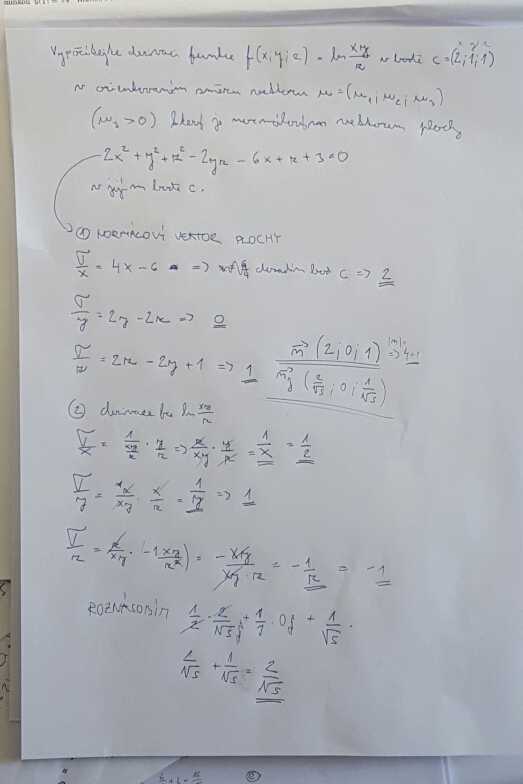 Vypočítejte derivaci funkce f(x,y,z) = ln xy/z v bodě c=(2;1;1)
v orientovaném směru vektoru u=(u1; u2; u3)
(u3>0) který je normálovým vektorem plochy
2x² + y² + z² - 2yz - 6x + z + 3 = 0
v jejím bodě c.
① NORMÁLOVÝ VEKTOR PLOCHY
∇/x = 4x - 6 => dosadím bod c => 2
∇/y = 2y - 2z => 0
∇/z = 2z - 2y + 1 => 1
n⃗ (2; 0; 1) |n| => 4+1
n⃗j (2/√5; 0; 1/√5)
② derivace fce ln xy/z
∇/x = 1/(xy/z) · y/z => z/xy · y/z = 1/x = 1/2
∇/y = z/xy · x/z = 1/y => 1
∇/z = z/xy · (-1 xy/z²) = -xy/(xy·z) = -1/z = -1
ROZNÁSOBÍM 1/2 · 2/√5 + 1/1 · 0 + 1/√5 ·
2/√5 + 1/√5 = 2/√5